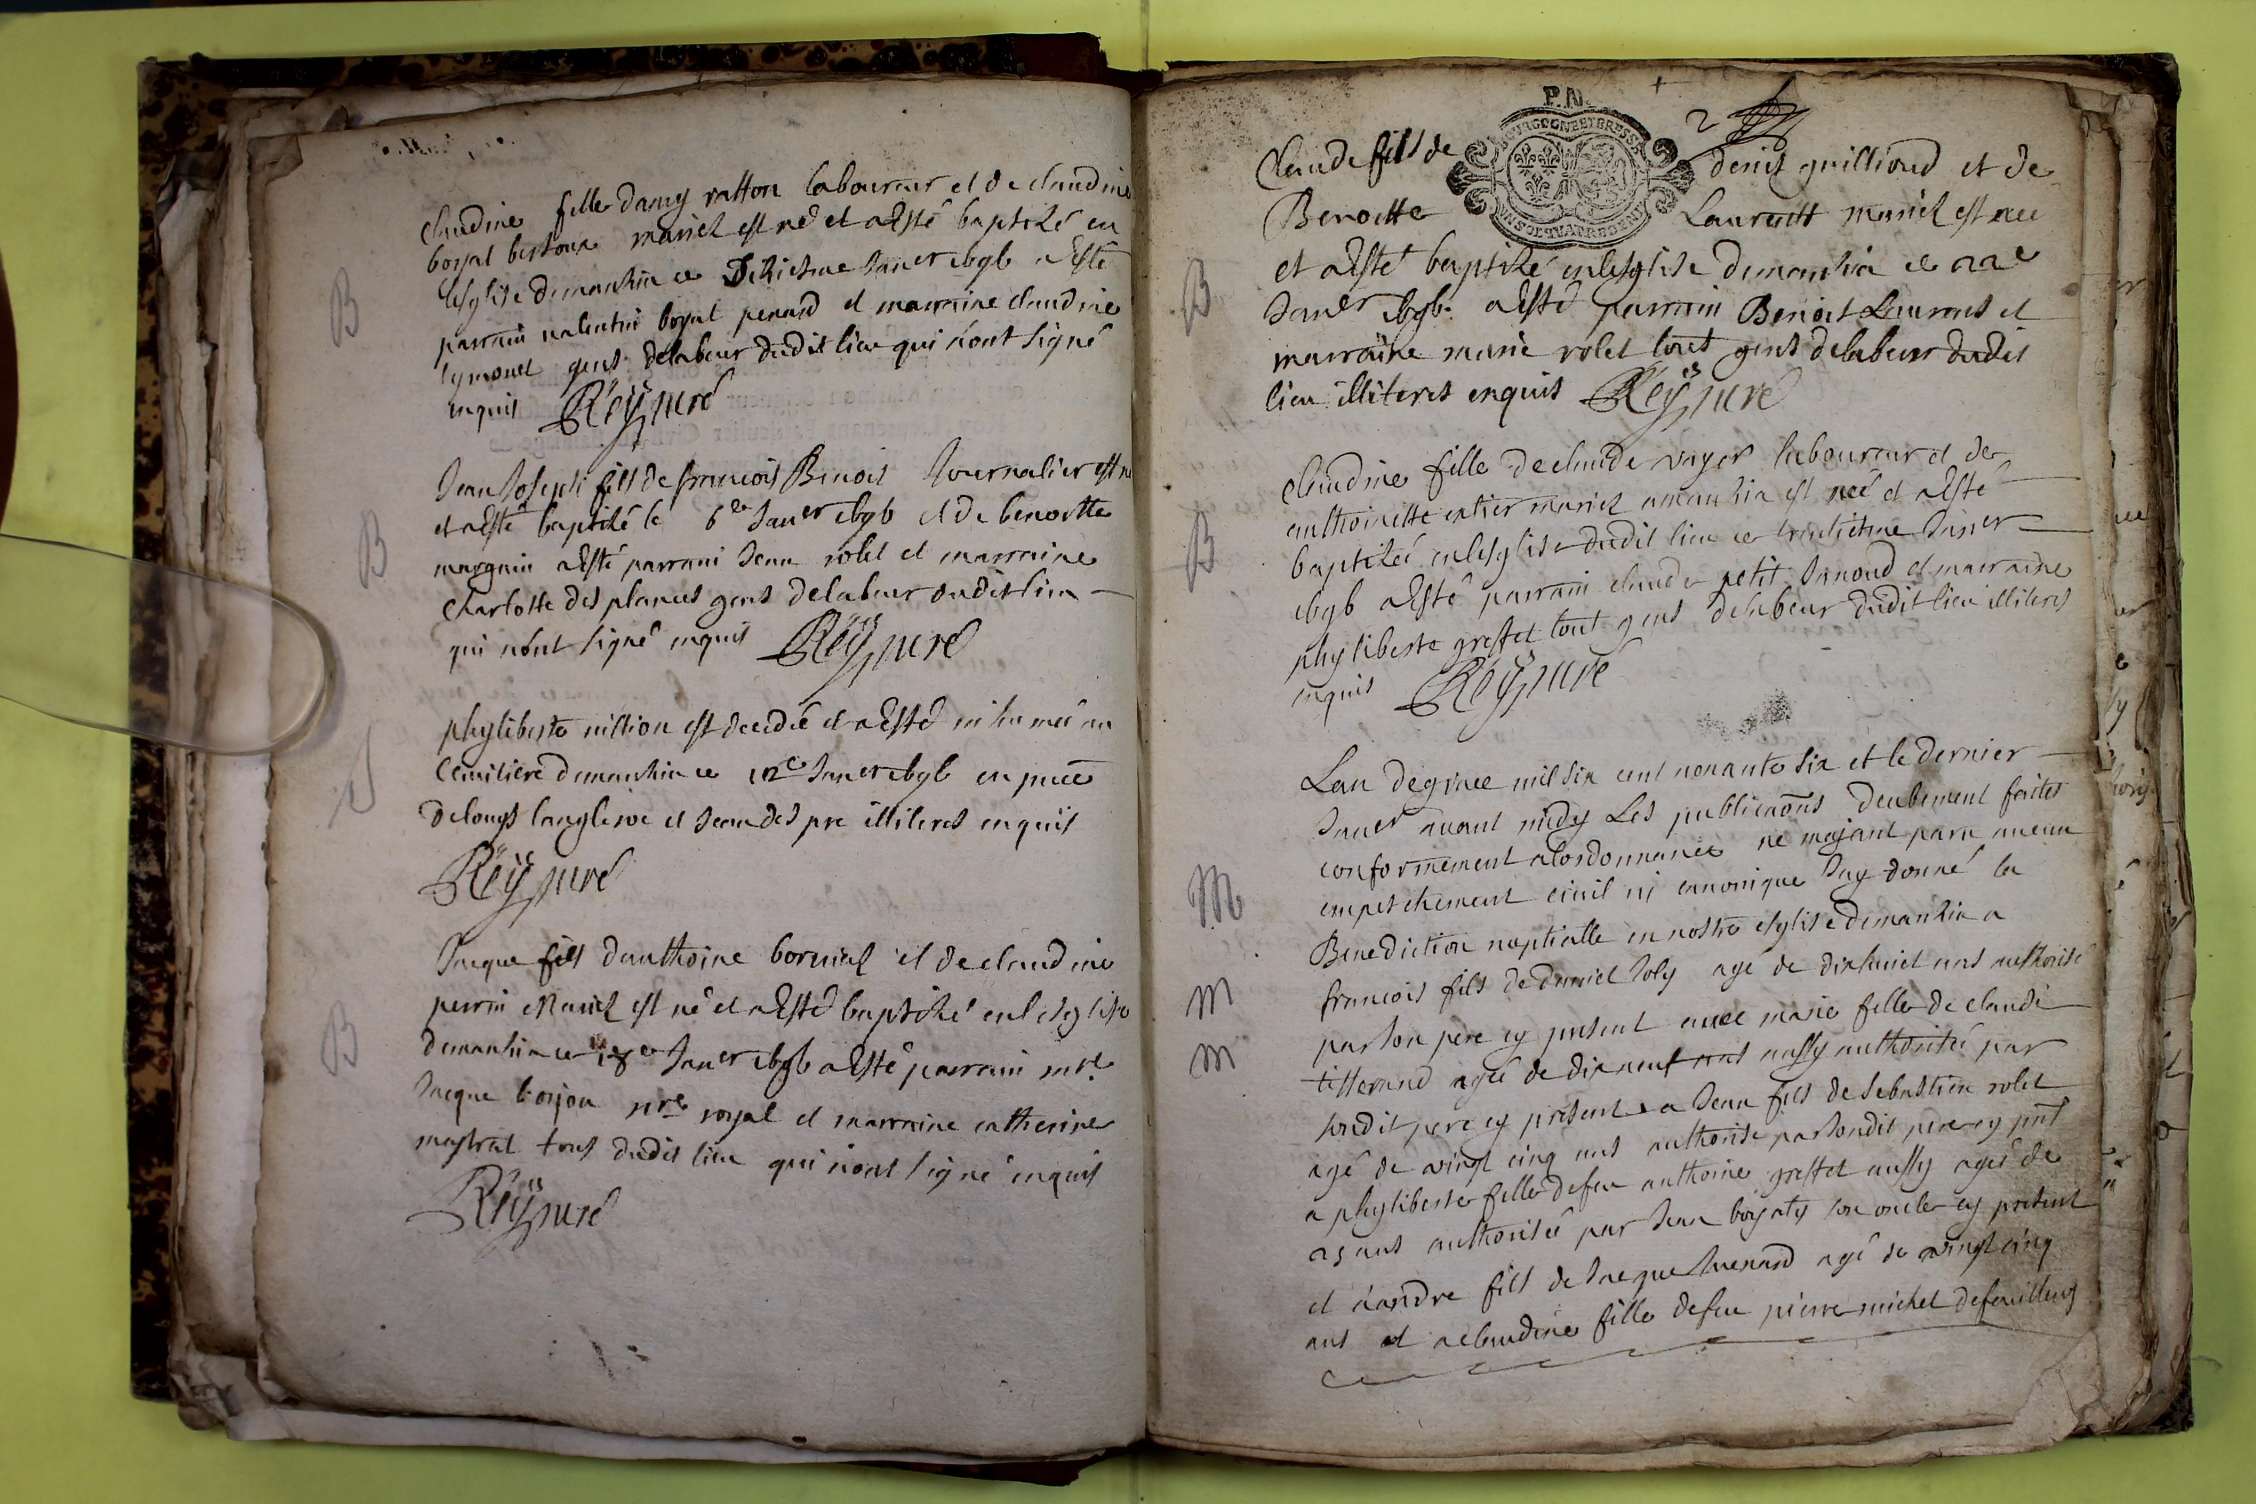 Claudine fille damy ratton laboureur et de claudine
boyal bertoux mariez est né et a Esté baptisé en
lesglise demanzia ce Sixiesme Janer
parrain valentin boyal penard et marraine claudine
symonet gens delabeur dudit lieu qui nont signé
enquis Reÿ curé
B
Jean Joseph fils de francois Benoit Journalier est né
et a Esté baptisé le 6e Janer et de benoitte
marguin a Esté parrain Jean rolet et marraine
Charlotte des planes gens delabeur dudit lieu
qui nont signé enquis Reÿ curé
B
phyliberte million est decedée et a Esté inhumée au
Cemitiere demanzia ce Janer en pnce
de louys langleroe et Jean des pre illiteres enquis
Reÿ curé
S
Jacque fils danthoine borniat et de claudine
perrin Mariez est né et a Esté baptisé en lesglise
demanzia ce 18e Janer a Esté parrain mre
Jacque borjon nre royal et marraine catherine
mastrat tous dudit lieu qui nont signé enquis
Reÿ curé
B
P. N.
2
BOURGOGNE ET BRESSE
Claude fils de denis guilliond et de
Benoitte Laurent mariez est née
et a Esté baptisé en lesglise demanzia ce 22e
Janer a Esté parrain Benoit Laurens et
marraine marie rolet tout gens delabeur dudit
lieu illiteres enquis Reÿ curé
B
Claudine fille de claude voyer laboureur et de
anthoinette mariez amanzia est neé et a Esté
baptiseé en lesglise dudit lieu ce trentiesme Janer
a Esté parrain claude petit Janond et marraine
phyliberte greffet tout gens delabeur dudit lieu illiteres
enquis Reÿ curé
B
Lan de grace mil six cent nonante six et le dernier
Janer avant midy Les publications deubement faites
conformement alordonnance ne mayant paru aucun
empeschement civil ni cannonique Jay donné la
M
Benediction nuptialle en nostre esglise demanzia a
francois fils de daniel Joly agé de dixhuict ans authorisé
M
par son pere cy present avec marie fille de claude
M
tisserand agée de dixneuf ans aussy authorisée par
sondit pere cy present a Jean fils de sebastien rolet
agé de vingt cinq ans authorise par sondit pere cy pnt
a phyliberte fille defeu anthoine greffet aussy agée de
25 ans authorisée par Jean boyaty son oncle cy present
et a andre fils de Jacque Juenard agé de vingt cinq
ans et a claudine fille defeu pierre michel defeuillens